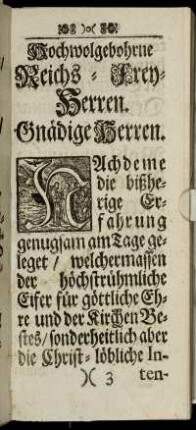 Hochwolgebohrne
Reichs-Frey-
Herren.
Gnädige Herren.
NAchdeme
die bißhe-
rige Er-
fahrung
genugsam am Tage ge-
leget / welchermassen
der höchstrühmliche
Eifer für göttliche Eh-
re und der Kirchen Be-
stes / sonderheitlich aber
die Christ-löbliche In-
)( 3 ten-